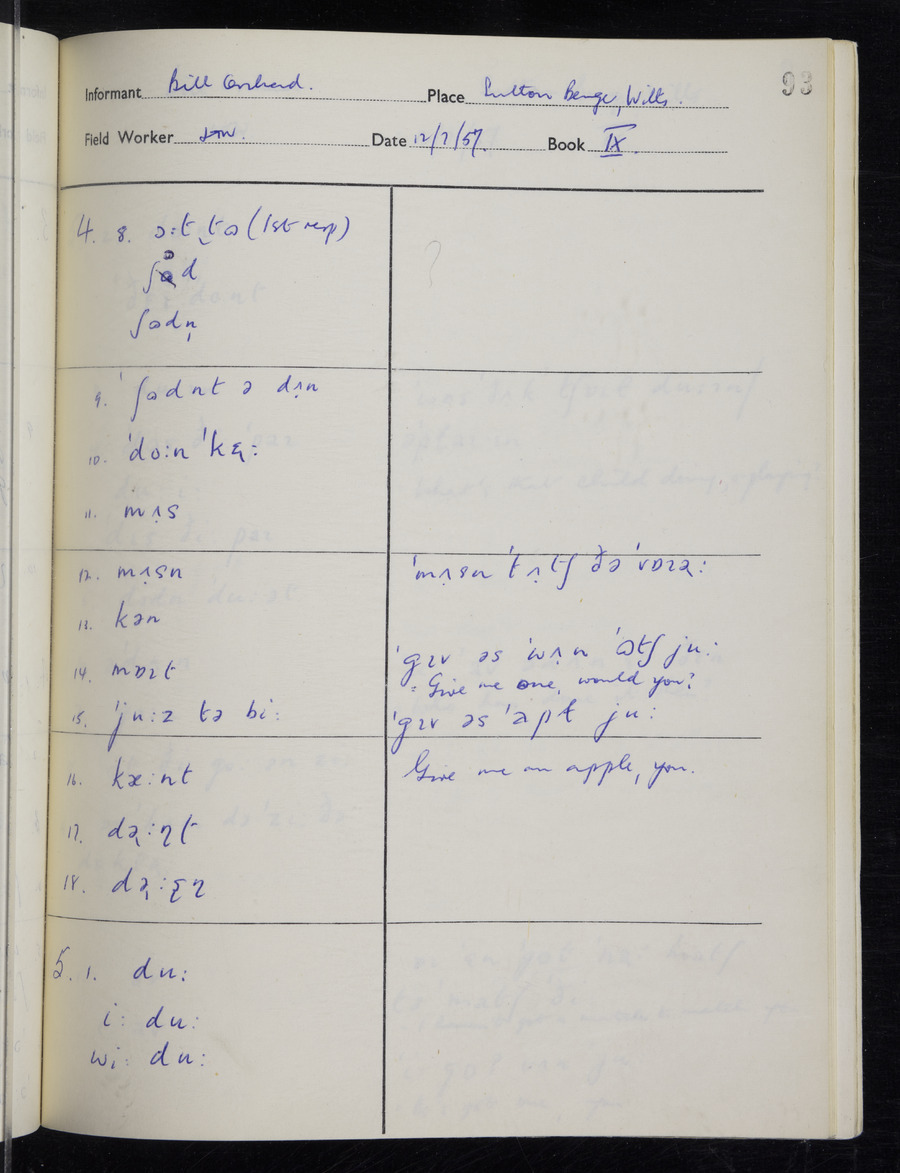 93
Informant Bill Orchard. Place Sutton Benger, Wilts.
Field Worker Date 12/7/57. Book IX.
4. 8. ɔ:t tə (1st resp)
ʃəd
ʃədn̩
9. ˈʃədnt ə dɪn
10. ˈdo:n ˈkɛ:
11. mɪs
12. mɪsn
ˈmɪsn ˈtɪtʃ ðə ˈvɒɪə:
13. kən
14. mɒɪt
ˈgɪv əs ˈwɪn ˈətʃ ju:
= Give me one, would you?
15. ˈju:z tə bi:
ˈgɪv əs ˈapɫ ju:
16. kæ:nt
Give me an apple, you.
17. də:ɳt
18. də:ʐɳ
5. 1. du:
i: du:
wi: du: